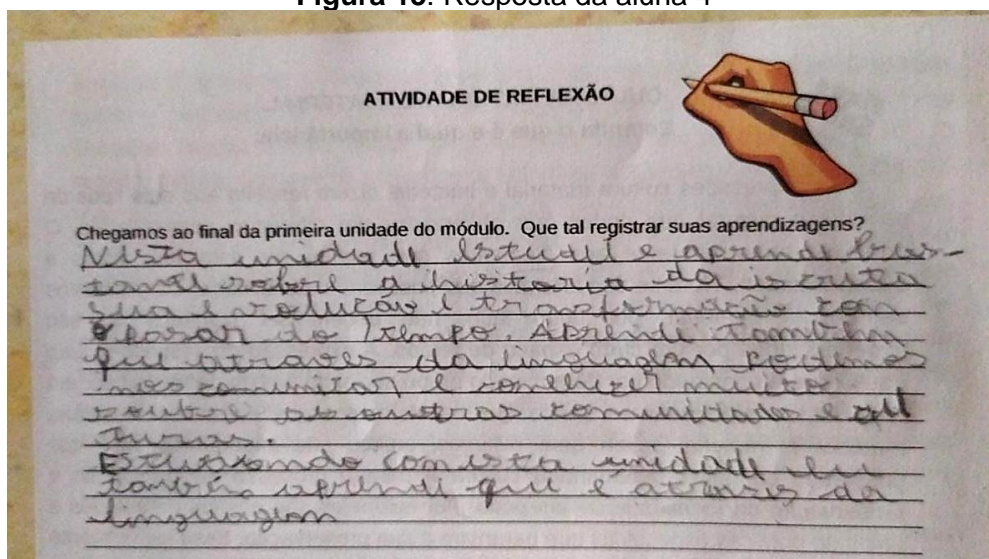 Figura 16: Resposta da aluna 4
ATIVIDADE DE REFLEXÃO
Chegamos ao final da primeira unidade do módulo. Que tal registrar suas aprendizagens?
Nesta unidade estudei e aprendi bas-
tante sobre a historia da escrita
sua evolução e transformação com
o pasar do tempo. Aprendi também
que atraves da linguagem podemos
nos comunitar e conhecer muito
soubre as outras comunidades e cul
turas.
Estudando com esta unidade eu
também aprendi que é atraves da
linguagem